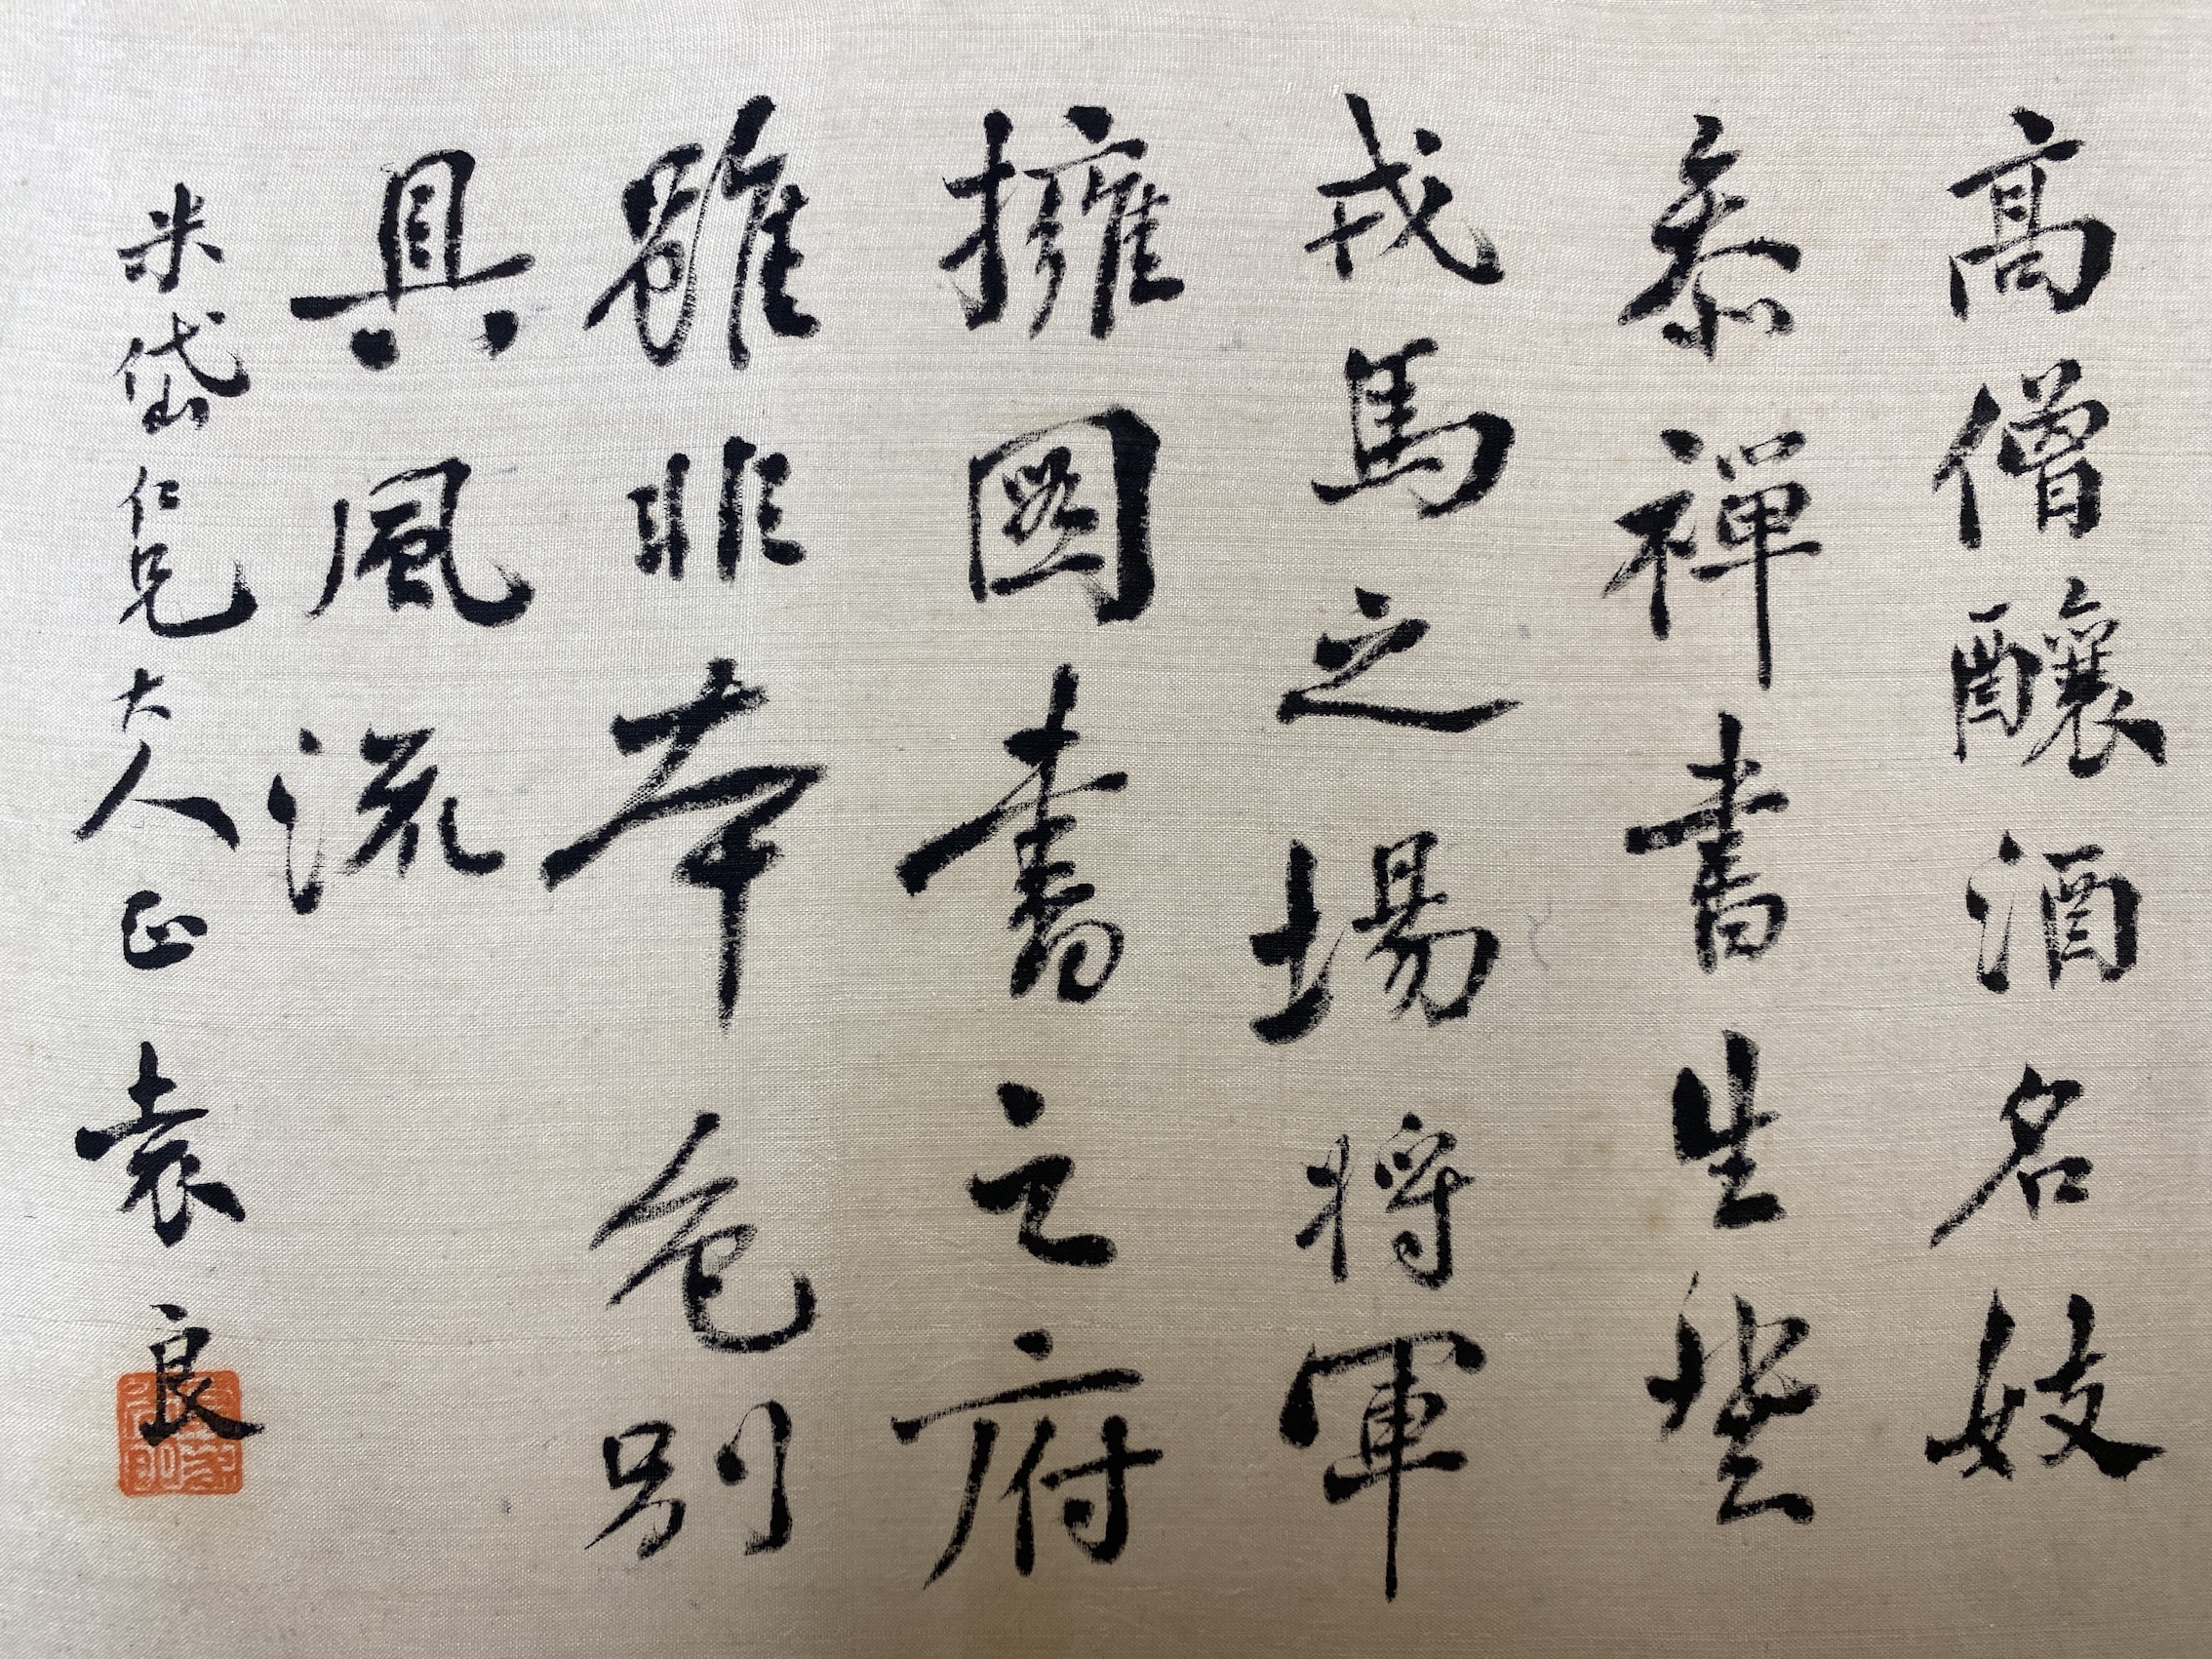 高僧釀酒名妓
叅禪書生登
戎馬之場將軍
擁圖書之府
雖非本色別
具風流
米岱仁兄大人正 袁良